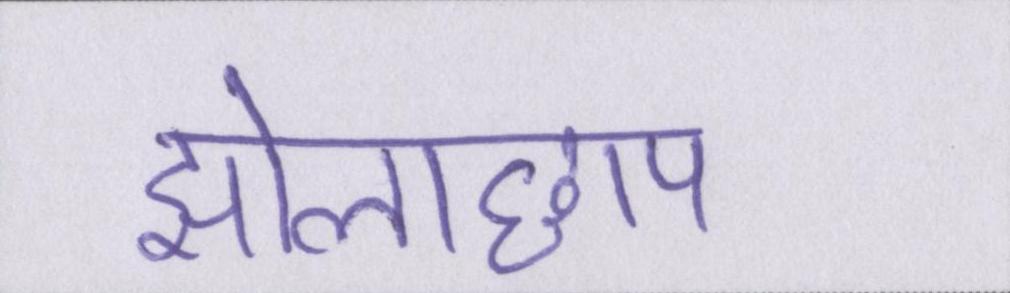 झोलाछाप